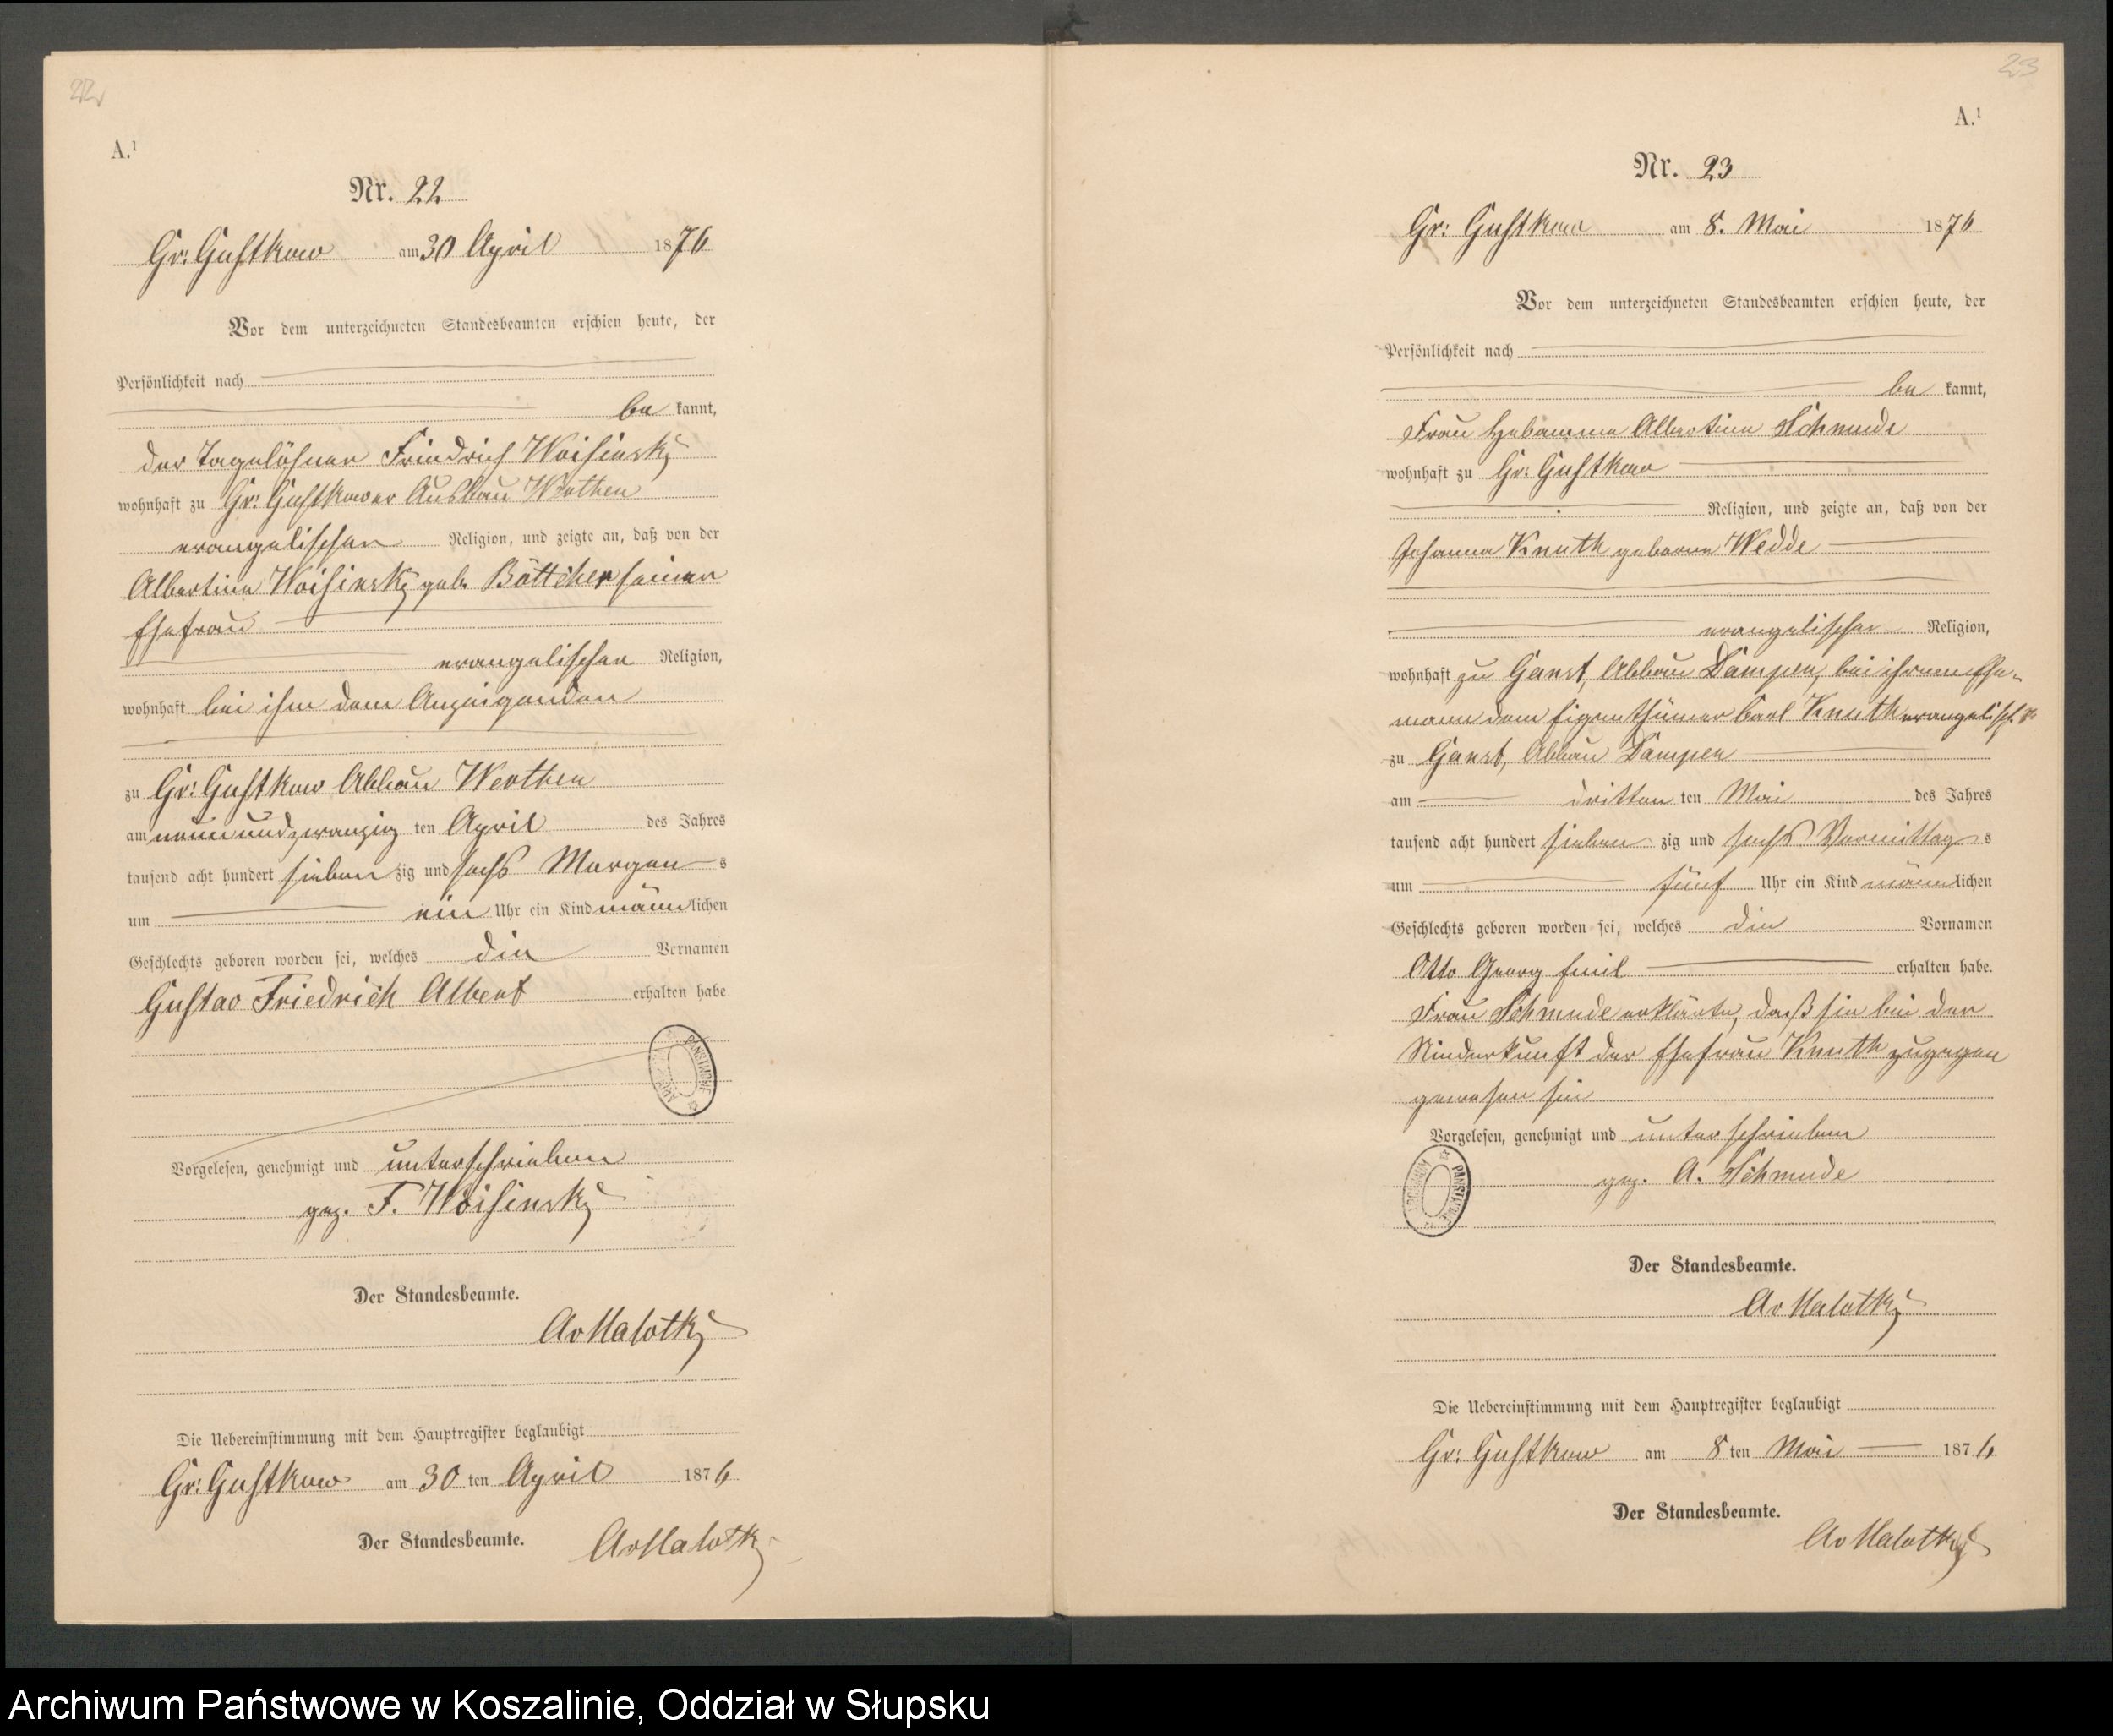 22
A.¹
Nr. 22
Gr: Gustkow am 30 April 1876
Vor dem unterzeichneten Standesbeamten erschien heute, der
Persönlichkeit nach
be kannt,
der Tagelöhner Friedrich Woisinsky
wohnhaft zu Gr: Gustkower Ausbau
evangelischen Religion, und zeigte an, daß von der
Albertine Woisinsky geb. Böttcher seiner
Ehefrau
evangelischen Religion,
wohnhaft bei ihm dem Anzeigenden
zu Gr: Gustkow Abbau Werthen
am neunundzwanzig ten April des Jahres
tausend acht hundert sieben zig und sechs Morgen s
um ein Uhr ein Kind männlichen
Geschlechts geboren worden sei, welches die Vornamen
Gustav Friedrich Albert erhalten habe
Vorgelesen, genehmigt und unterschrieben
gez. F. Woisinsky
Der Standesbeamte.
AvMalotky
Die Uebereinstimmung mit dem Hauptregister beglaubigt
Gr: Gustkow am 30 ten April 1876
Der Standesbeamte. AvMalotky
23
A.¹
Nr. 23
Gr: Gustkow am 8. Mai 1876
Vor dem unterzeichneten Standesbeamten erschien heute, der
Persönlichkeit nach
be kannt,
Frau Hebamme Albertine Schmude
wohnhaft zu Gr: Gustkow
Religion, und zeigte an, daß von der
Johanna Knuth geborne Wedde
evangelischer Religion,
wohnhaft zu Ganst, Abbau Dampen, bei ihrem Ehe-
mann dem Eigenthümer Carl Knuth evangelisch
zu Ganst, Abbau Dampen
am dritten ten Mai des Jahres
tausend acht hundert sieben zig und sechs Vormittag s
um fünf Uhr ein Kind männlichen
Geschlechts geboren worden sei, welches die Vornamen
Otto Georg Emil erhalten habe.
Frau Schmude erklärte, daß sie bei der
Niederkunft der Ehefrau Knuth zugegen
gewesen sei
Vorgelesen, genehmigt und unterschrieben
gez. A. Schmude
ARCHIWUM PAŃSTWOWE
Der Standesbeamte.
AvMalotky
Die Uebereinstimmung mit dem Hauptregister beglaubigt
Gr: Gustkow am 8 ten Mai 1876
Der Standesbeamte.
AvMalotky
Archiwum Państwowe w Koszalinie, Oddział w Słupsku